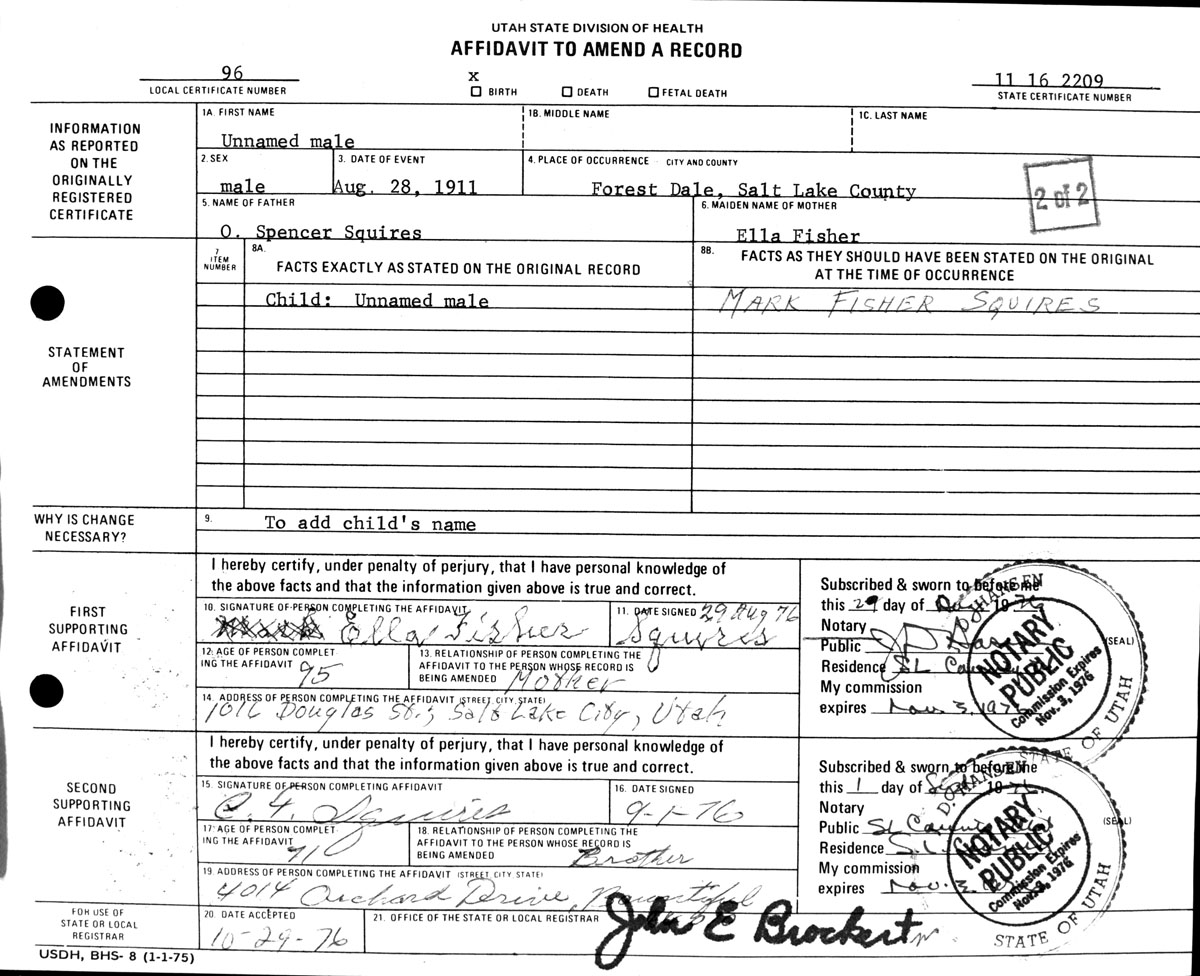 UTAH STATE DIVISION OF HEALTH
AFFIDAVIT TO AMEND A RECORD
96
LOCAL CERTIFICATE NUMBER
X
BIRTH DEATH FETAL DEATH
11 16 2209
STATE CERTIFICATE NUMBER
INFORMATION
AS REPORTED
ON THE
ORIGINALLY
REGISTERED
CERTIFICATE
1A. FIRST NAME
Unnamed male
1B. MIDDLE NAME
1C. LAST NAME
2. SEX
male
3. DATE OF EVENT
Aug. 28, 1911
4. PLACE OF OCCURRENCE – CITY AND COUNTY
Forest Dale, Salt Lake County
2 of 2
5. NAME OF FATHER
O. Spencer Squires
6. MAIDEN NAME OF MOTHER
Ella Fisher
STATEMENT
OF
AMENDMENTS
7
ITEM
NUMBER
8A.
FACTS EXACTLY AS STATED ON THE ORIGINAL RECORD
8B.
FACTS AS THEY SHOULD HAVE BEEN STATED ON THE ORIGINAL
AT THE TIME OF OCCURRENCE
Child: Unnamed male
MARK FISHER SQUIRES
WHY IS CHANGE
NECESSARY?
9.
To add child's name
FIRST
SUPPORTING
AFFIDAVIT
I hereby certify, under penalty of perjury, that I have personal knowledge of
the above facts and that the information given above is true and correct.
10. SIGNATURE OF PERSON COMPLETING THE AFFIDAVIT
Ella Fisher Squires
11. DATE SIGNED
29 Aug 76
12. AGE OF PERSON COMPLET-
ING THE AFFIDAVIT
95
13. RELATIONSHIP OF PERSON COMPLETING THE
AFFIDAVIT TO THE PERSON WHOSE RECORD IS
BEING AMENDED
Mother
14. ADDRESS OF PERSON COMPLETING THE AFFIDAVIT (STREET, CITY, STATE)
Douglas St., Salt Lake City, Utah
Subscribed & sworn to before me
this 29 day of Aug 1976
Notary
Public
Residence SL County
My commission
expires Nov 3, 1976
(SEAL)
D. HANSEN
NOTARY
PUBLIC
Commission Expires
Nov. 3, 1976
STATE OF UTAH
SECOND
SUPPORTING
AFFIDAVIT
I hereby certify, under penalty of perjury, that I have personal knowledge of
the above facts and that the information given above is true and correct.
15. SIGNATURE OF PERSON COMPLETING AFFIDAVIT
C. F. Squires
16. DATE SIGNED
9-1-76
17. AGE OF PERSON COMPLET-
ING THE AFFIDAVIT
71
18. RELATIONSHIP OF PERSON COMPLETING THE
AFFIDAVIT TO THE PERSON WHOSE RECORD IS
BEING AMENDED
Brother
19. ADDRESS OF PERSON COMPLETING THE AFFIDAVIT (STREET, CITY, STATE)
4014 Orchard Drive, Bountiful
Subscribed & sworn to before me
this 1 day of Sept 1976
Notary
Public
Residence
My commission
expires Nov. 3
(SEAL)
D. HANSEN
NOTARY
PUBLIC
Commission Expires
Nov. 3, 1976
STATE OF UTAH
FOR USE OF
STATE OR LOCAL
REGISTRAR
20. DATE ACCEPTED
10-29-76
21. OFFICE OF THE STATE OR LOCAL REGISTRAR
John E Brockert
USDH, BHS- 8 (1-1-75)